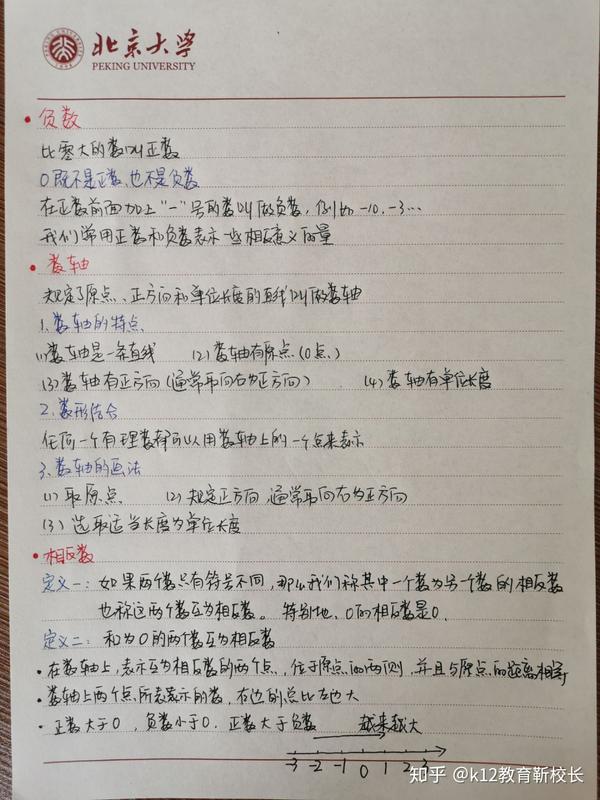 北京大学
PEKING UNIVERSITY
• 负数
比零大的数叫正数
0既不是正数,也不是负数
在正数前面加上“-”号的数叫做负数,例如-10,-3…
我们常用正数和负数表示一些相反意义的量
• 数轴
规定了原点、正方向和单位长度的直线叫做数轴
1.数轴的特点
(1)数轴是一条直线 (2)数轴有原点(0点)
(3)数轴有正方向(通常取向右为正方向) (4)数轴有单位长度
2.数形结合
任何一个有理数都可以用数轴上的一个点来表示
3.数轴的画法
(1)取原点 (2)规定正方向,通常取向右为正方向
(3)选取适当长度为单位长度
• 相反数
定义一:如果两个数只有符号不同,那么我们称其中一个数为另一个数的相反数
也称这两个数互为相反数。特别地,0的相反数是0.
定义二:和为0的两个数互为相反数
• 在数轴上,表示互为相反数的两个点,位于原点的两侧,并且与原点的距离相等
• 数轴上两个点所表示的数,右边的总比左边大
• 正数大于0,负数小于0,正数大于负数 越来越大
-3 -2 -1 0 1 2 3
知乎 @k12教育靳校长